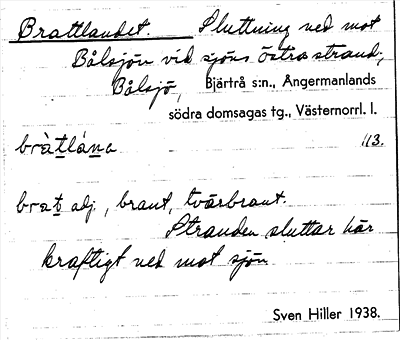 Brattlandet. Sluttning ned mot
Bålsjön vid sjöns östra strand;
Bålsjö, Bjärtrå s:n., Ångermanlands
södra domsagas tg., Västernorrl. l.
bràt̲lán̲a 113.
brat̲ adj., brant, tvärbrant.
Stranden sluttar här
kraftigt ned mot sjön
Sven Hiller 1938.